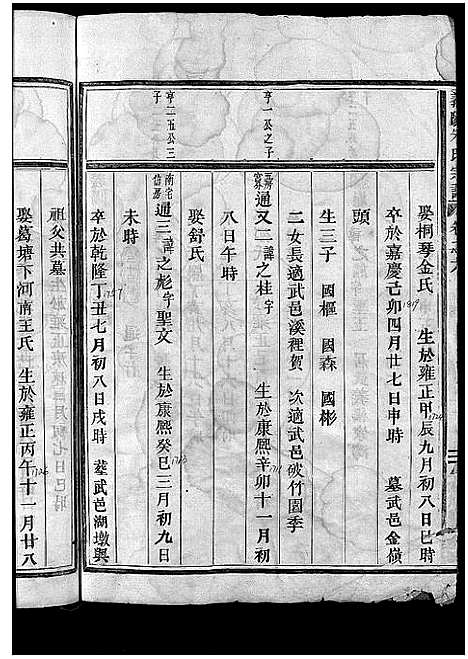 娶桐琴金氏 生於雍正甲辰九月初八日巳時
1724
卒於嘉慶己卯四月廿七日申時 墓武邑金嶺
1819
頭
生三子 國樞 國森 國彬
二女長適武邑溪裡賀 次適武邑破竹園季
亨一公之子
通又二諱之桂字 生於康熙辛卯十一月初
1711
八日午時
娶舒氏
亨二五公三子
南宅信房通三諱之彪字聖文 生於康熙癸巳三月初九日
1713
未時
卒於乾隆丁丑七月初八日戌時 墓武邑湖墩與
1757
祖父共墓
娶葛塘下河南王氏 生於雍正丙午十一月廿八
1726